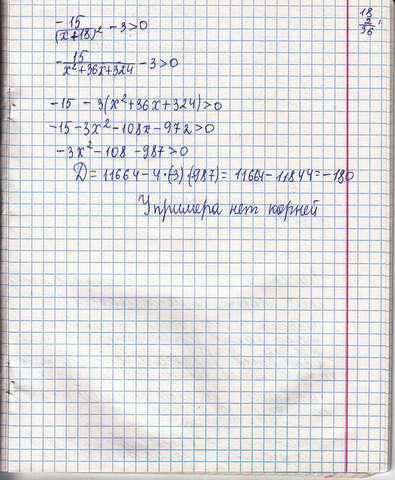 -15/(x+18)² - 3>0
-15/x²+36x+324 - 3>0
-15 - 3(x²+36x+324)>0
-15-3x²-108x-972>0
-3x²-108-987>0
D=11664-4·(-3)·(-987)= 11664-11844=-180
У примера нет корней
18
2
36